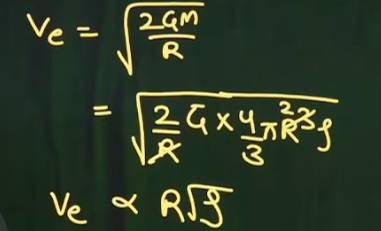 Ve = √(2GM/R)
= √(2/R G × 4/3 πR²³ρ)
Ve ∝ R√ρ